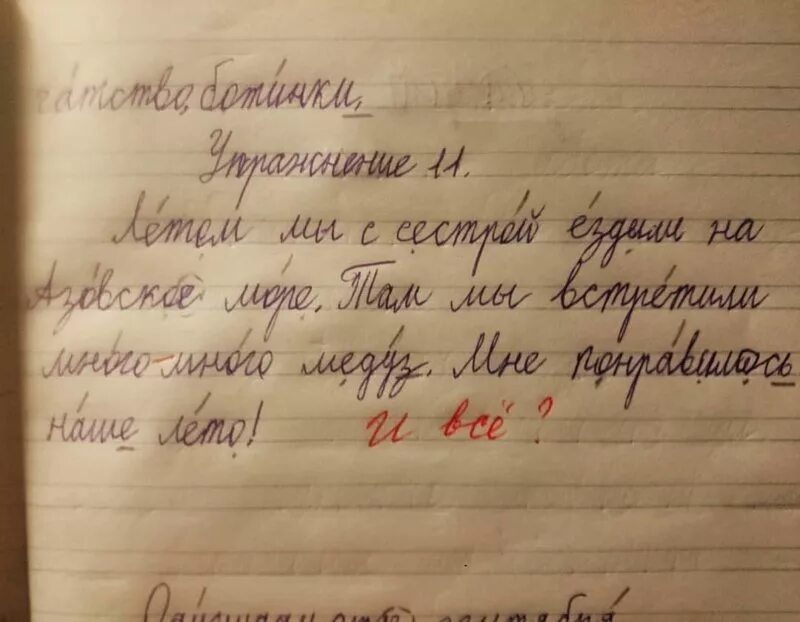 а́тство, боти́нки.
Упражнение 11.
Ле́том мы с сестро́й е́здили на
Азо́вское мо́ре. Там мы встре́тили
мно́го-мно́го меду́з. Мне понра́вилось
на́ше ле́то! И всё?